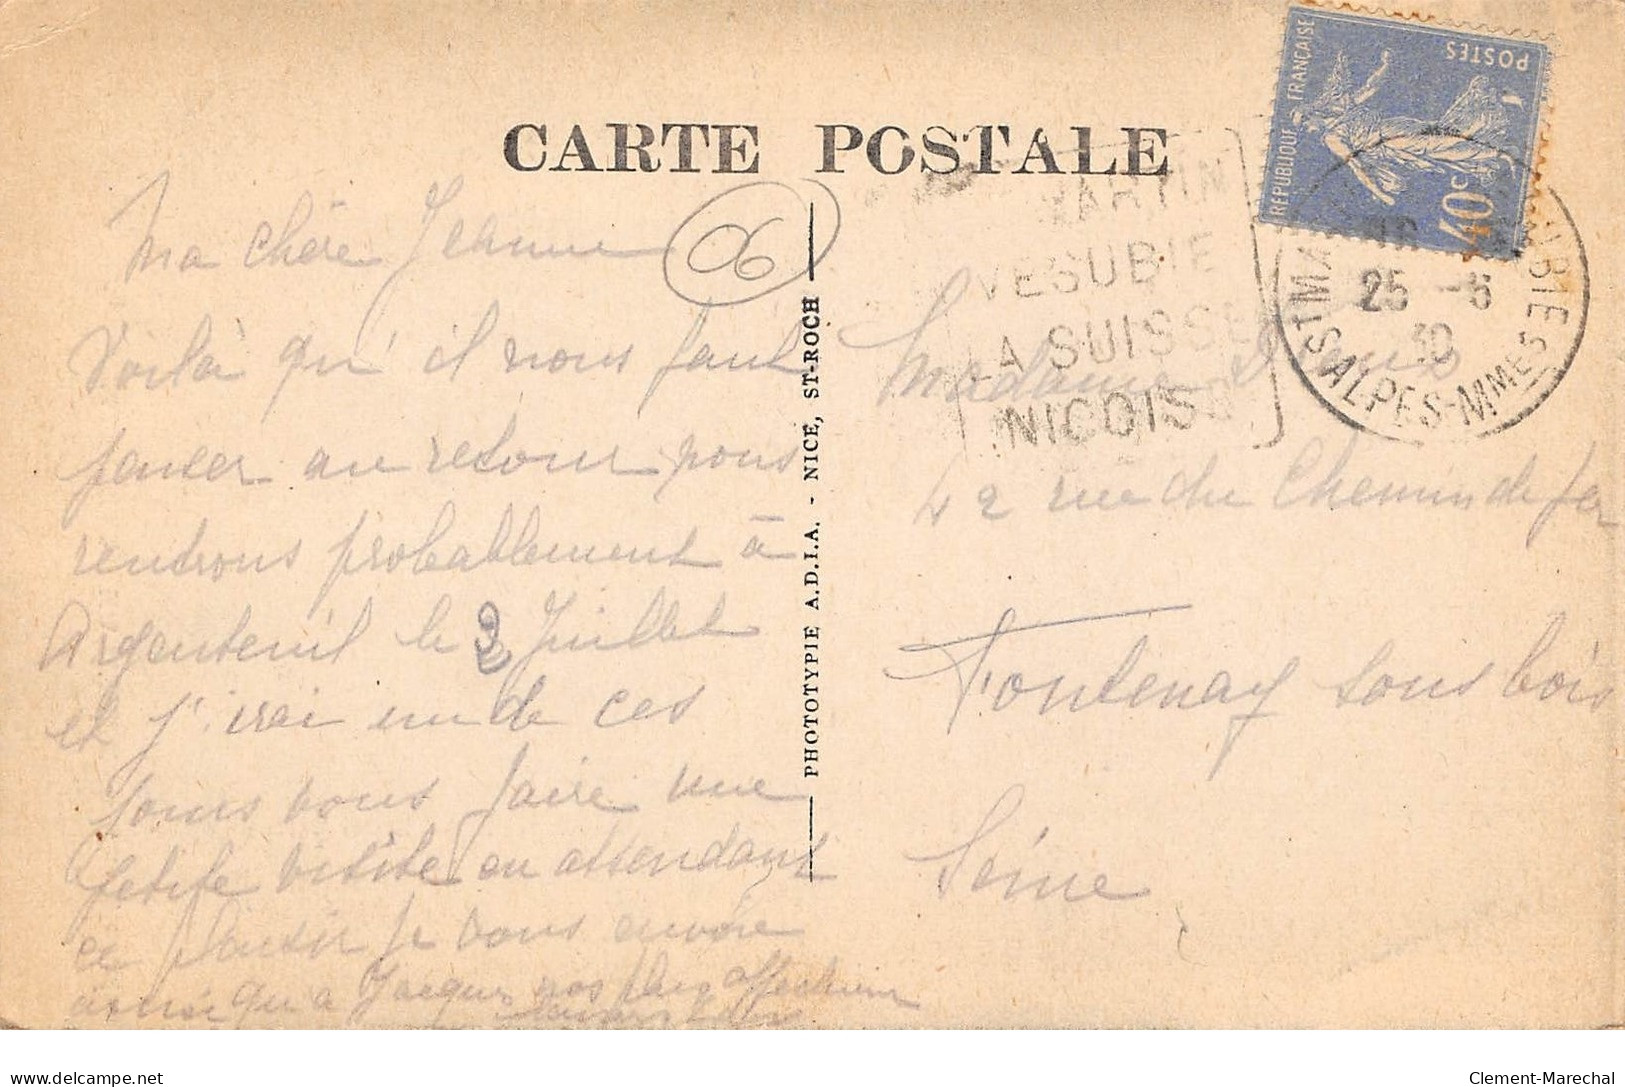 CARTE POSTALE
RÉPUBLIQUE FRANÇAISE
POSTES
40c
MARTIN
VESUBIE
LA SUISSE
NICOISE
ST MARTIN VÉSUBIE
25 -6
30
ALPES-MMES
06
Ma chère Jeanne
Voilà qu'il nous faut
penser au retour nous
rendrons probablement à
Argenteuil le 2 Juillet
et j'irai un de ces
jours vous faire une
petite visite en attendant
ce plaisir je vous envoie
ainsi qu'a Jacques nos plus affectueux
PHOTOTYPIE A.D.I.A. - NICE, ST-ROCH
Madame
42 rue du Chemin de fer
Fontenay sous bois
Seine
delcampe.net
Clement-Marechal